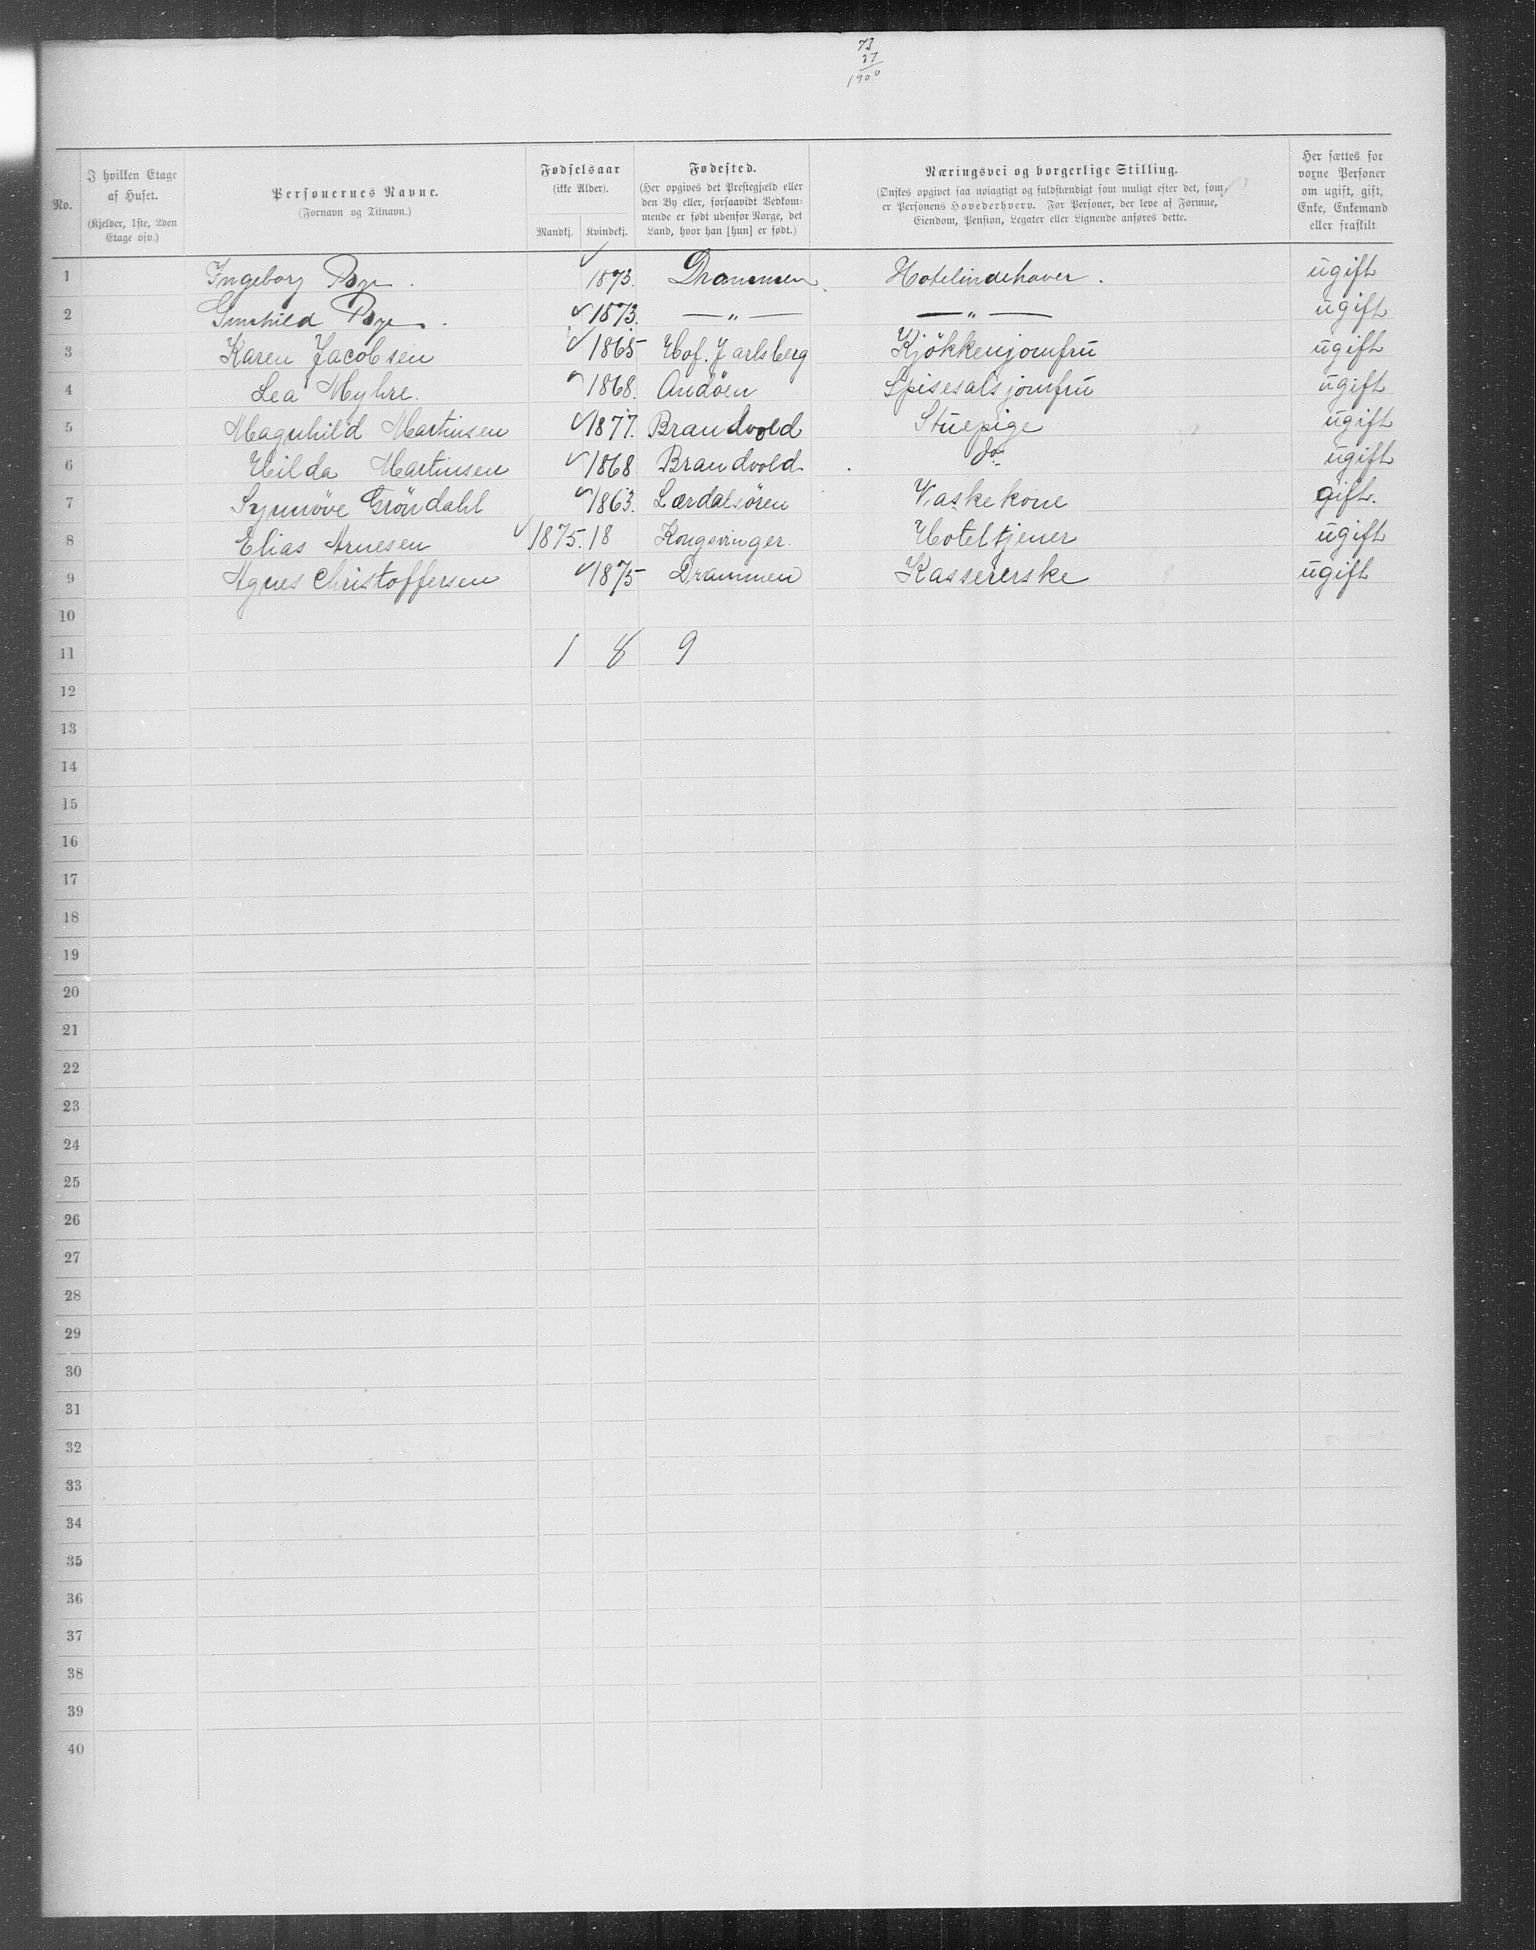 73
27
1900
No.
I hvilken Etage af Huset.
(Kjelder, 1ste, 2den Etage osv.)
Personernes Navne.
(Fornavn og Tilnavn.)
Fødselsaar
(ikke Alder).
Mandkj. Kvindekj.
Fødested.
(Her opgives det Prestegjæld eller
den By eller, forsaavidt Vedkom-
mende er født udenfor Norge, det
Land, hvor han [hun] er født.)
Næringsvei og borgerlige Stilling.
(Ønskes opgivet saa nøiagtigt og fuldstændigt som muligt efter det, som
er Personens Hovederhverv. For Personer, der leve af Formue,
Eiendom, Pension, Legater eller Lignende anføres dette.
Her sættes for
voxne Personer
om ugift, gift,
Enke, Enkemand
eller fraskilt
1 Ingeborg Bye. 1873. Drammen. Hotelindehaver. ugift
2 Gunhild Bye. 1873. — " — — " — ugift
3 Karen Jacobsen 1865 Hof. Jarlsberg Kjökkenjomfru ugift
4 Lea Myhre. 1868. Andöen Spisesalsjomfru ugift
5 Magnhild Martinsen 1877. Brandvold Stuepige ugift
6 Hilda Martinsen 1868 Brandvold. do ugift
7 Synnöve Gröndahl 1863. Lærdalsören Vaskekone gift.
8 Elias Arnesen 1875. 18 Kongsvinger. Hoteltjener ugift
9 Agnes Christoffersen 1875 Drammen Kassererske ugift
10
11 1 8 9
12
13
14
15
16
17
18
19
20
21
22
23
24
25
26
27
28
29
30
31
32
33
34
35
36
37
38
39
40